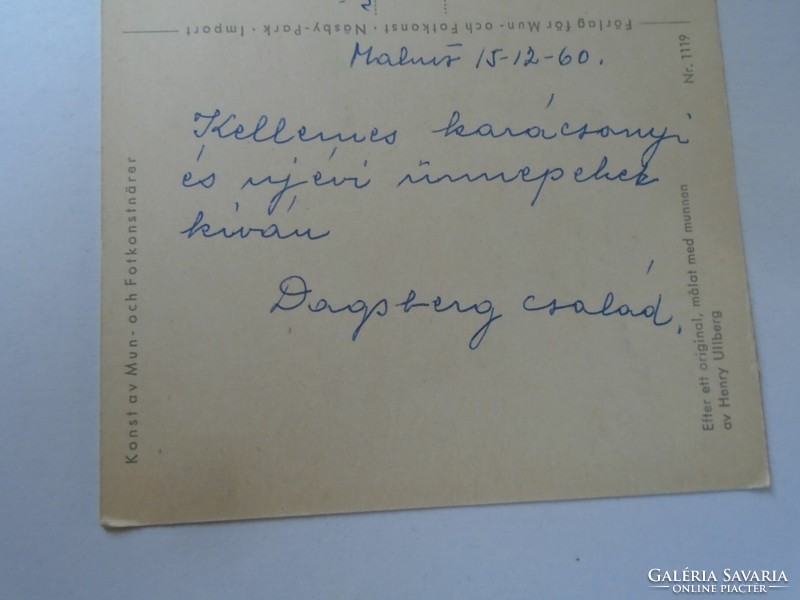 Förlag för Mun- och Fotkonst · Näsby-Park · Import
Malmö 15-12-60.
Nr. 1119
Kellemes karácsonyi
és ujévi ünnepeket
kíván
Dagsberg család.
Konst av Mun- och Fotkonstnärer
Efter ett original, målat med munnen
av Henry Ullberg
GALÉRIA SAVARIA
ONLINE PIACTÉR